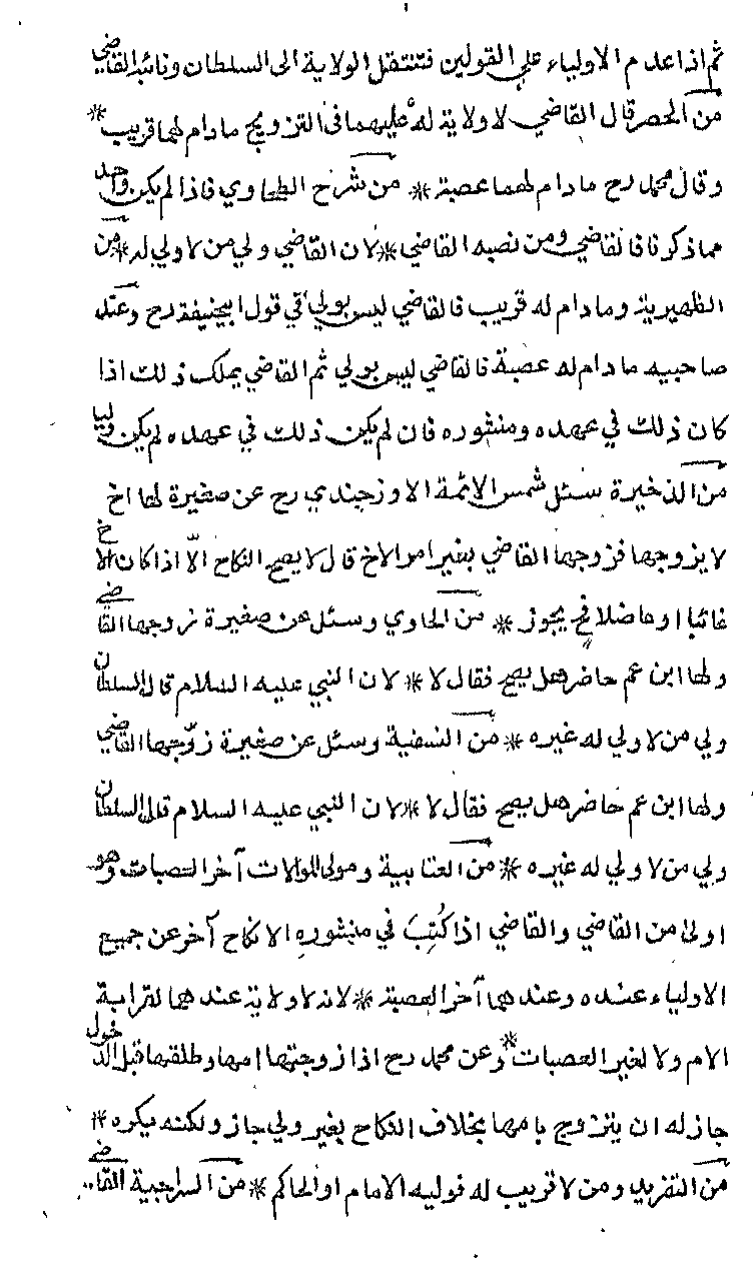 ثم اذا عدم الاولياء على القولين فتنتقل الولاية الى السلطان ونائبه القاضي
من الحصر قال القاضي لا ولاية له عليهما في التزويج ما دام لهما قريب *
وقال محمد رح ما دام لهما عصبة * من شرح الطحاوي فاذا لم يكن واحد
مما ذكرنا فالقاضي ومن نصبه القاضي * لان القاضي ولي من لا ولي له * من
الظهيرية وما دام له قريب فالقاضي ليس بولي في قول ابيحنيفة رح وعند
صاحبيه ما دام له عصبة فالقاضي ليس بولي ثم القاضي يملك ذلك اذا
كان ذلك في عهده ومنشوره فان لم يكن ذلك في عهده لم يكن وليا
من الذخيرة سئل شمس الائمة الاوزجندي رح عن صغيرة لها اخ
لا يزوجها فزوجها القاضي بغير امر الاخ قال لا يصح النكاح الّا اذا كان الاخ
غائبا او عاضلا فح يجوز * من الحاوي وسئل عن صغيرة زوجها القاضي
ولها ابن عم حاضر هل يصح فقال لا * لان النبي عليه السلام قال السلطان
ولي من لا ولي له غيره * من النسفية وسئل عن صغيرة زوّجها القاضي
ولها ابن عم حاضر هل يصح فقال لا * لان النبي عليه السلام قال السلطان
ولي من لا ولي له غيره * من العتابية ومولى الموالات آخر العصبات وهو
اولى من القاضي والقاضي اذا كُتِبَ في منشوره الانكاح آخر عن جميع
الاولياء عنده وعندهما آخر العصبة * لانه لا ولاية عندهما لقرابة
الام ولا لغير العصبات * وعن محمد رح اذا زوجتها امها وطلقها قبل الدخول
جاز له ان يتزوج بامها بخلاف النكاح بغير ولي جاز ولكنه يكره *
من التفريد ومن لا قريب له فوليه الامام او الحاكم * من السراجية القاضي